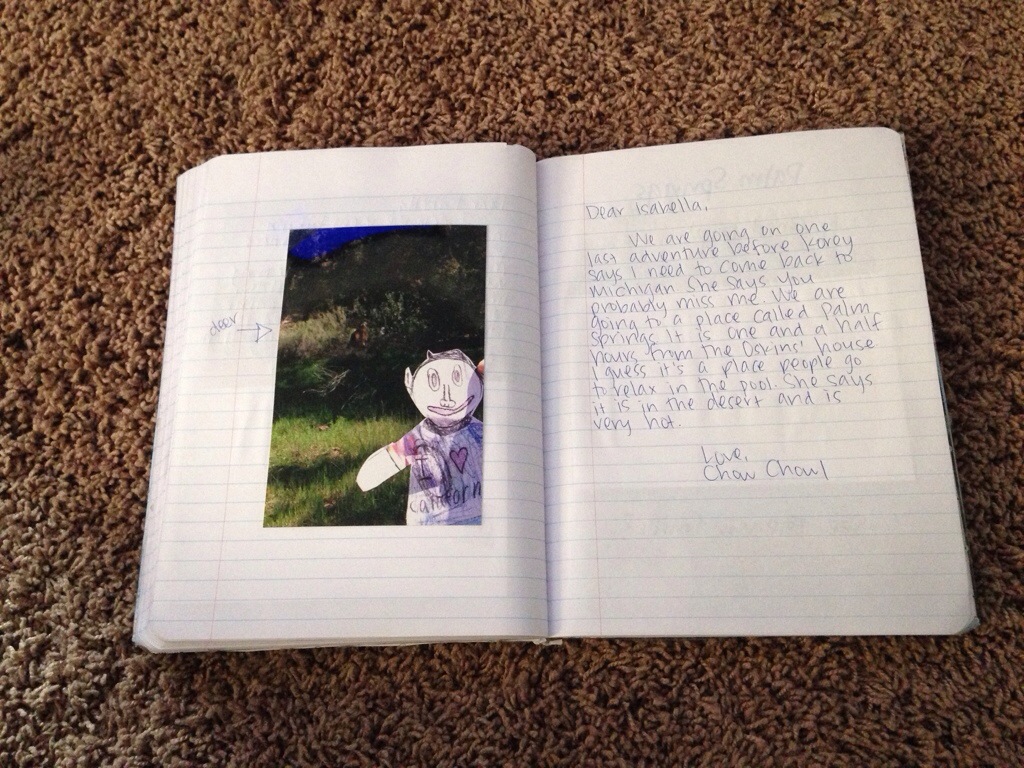 deer
I
californ
Dear Isabella,
We are going on one
last adventure before Korey
says I need to come back to
michigan. She says you
probably miss me. We are
going to a place called Palm
Springs it is one and a half
hours from the Oskins' house
I guess it's a place people go
to relax in the pool. She says
it is in the desert and is
very hot.
Love,
Chow Chowl